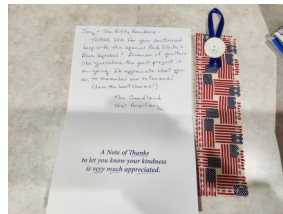 Thank you for your continued
help with the special Red, White &
Blue layettes! Because of quilters
like yourselves the quilt project is
on-going. We appreciate what you
do, to remember our veterans.
(Love the book marks!)
The
Auxiliary
A Note of Thanks
to let you know your kindness
is very much appreciated.